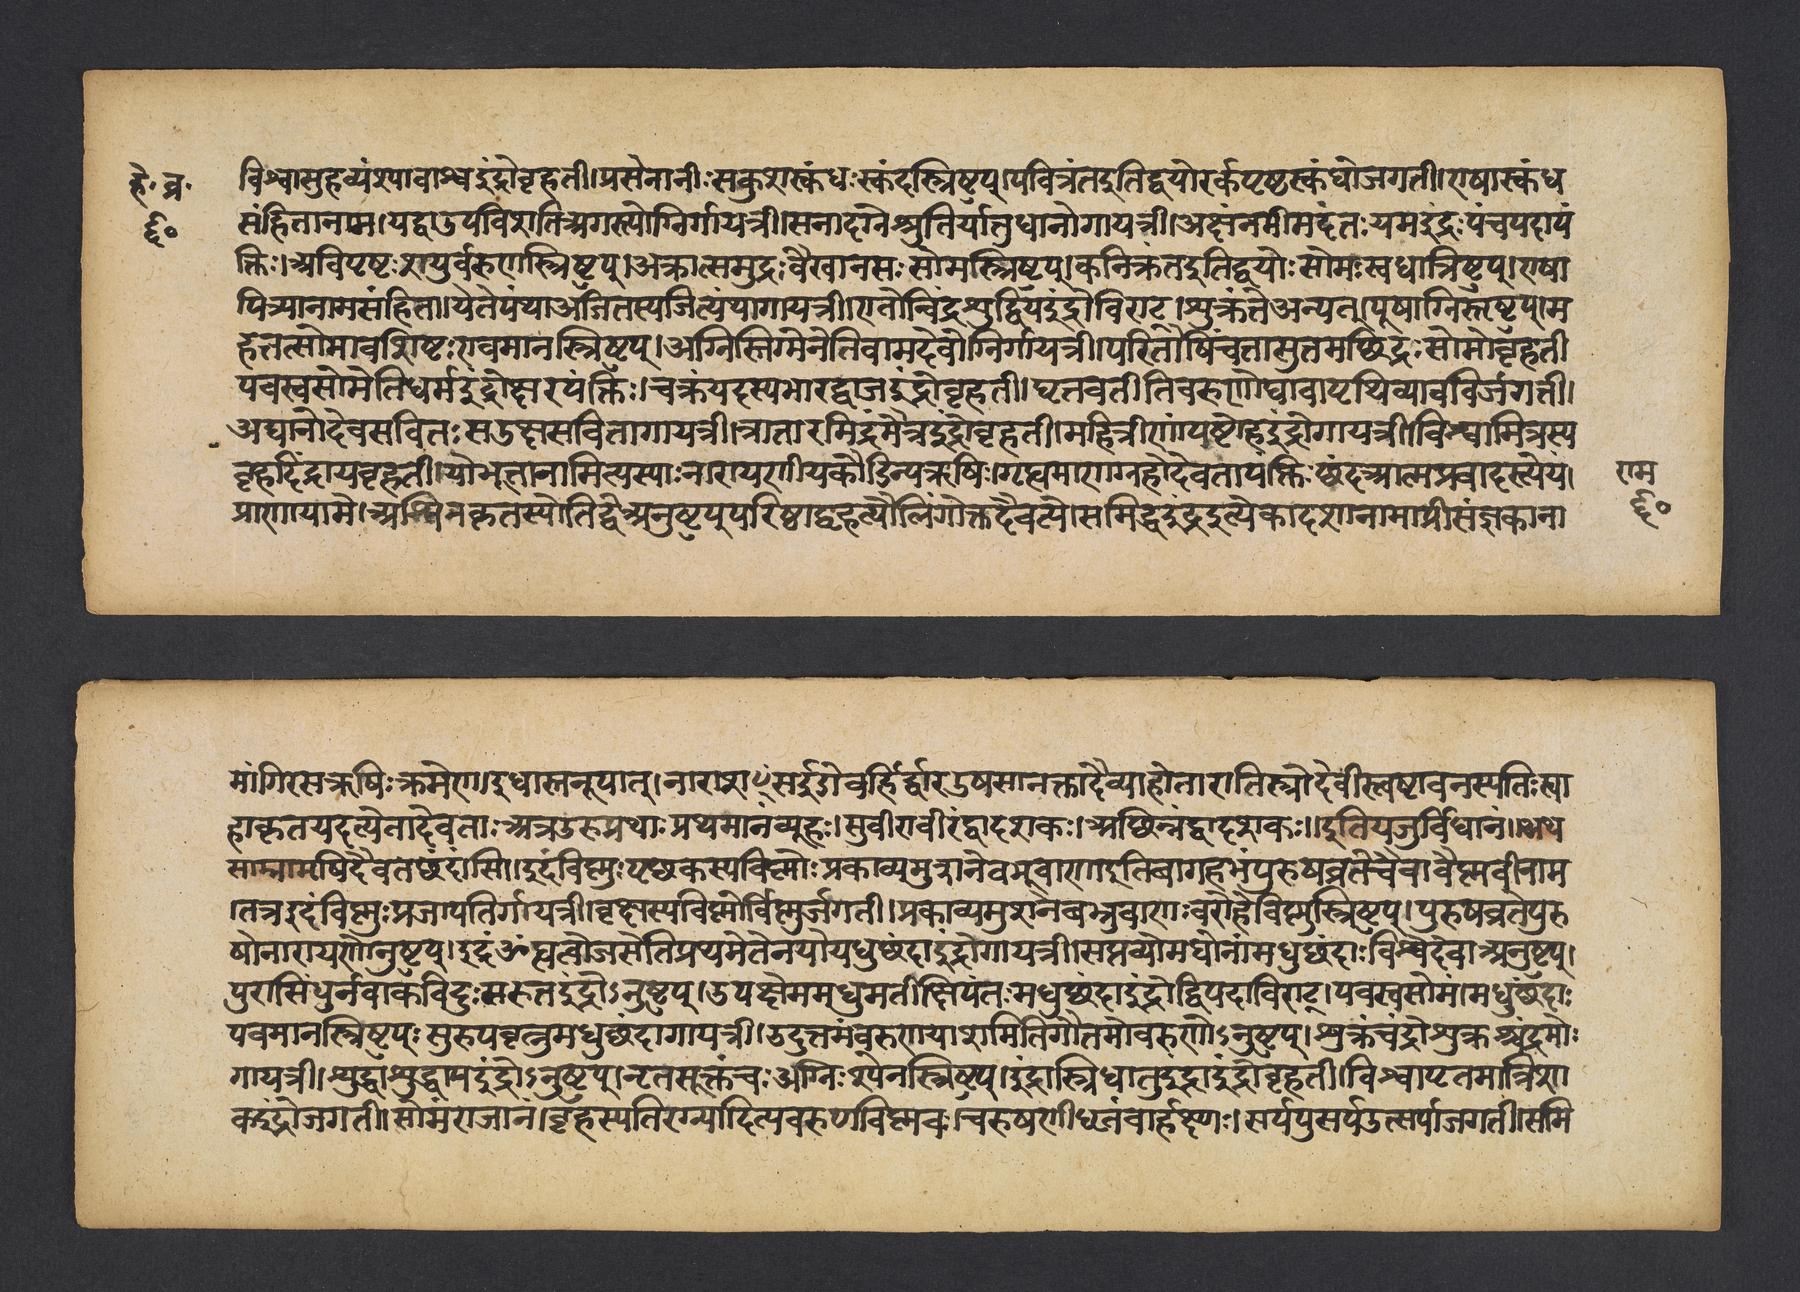 हे. व्र.
६०
विश्वासुहव्यंश्यावाश्वइंद्रोबृहती।प्रसेनानीःसकुशस्कंधःस्कंदस्त्रिष्टुप्।पवित्रंतइतिद्वयोरर्कपृष्ठस्कंधोजगती।एषास्कंध
संहितानाम।यद्वाउपविशतिअगस्त्योग्निर्गायत्री।सनादग्नेश्रुतिर्यातुधानोगायत्री।अक्षंनमीमदंतःयमइंद्रःपंचपदापं
क्तिः।अविपृष्टःशयुर्वरुणस्त्रिष्टुप्।अक्रात्समुद्रःवैखानसःसोमस्त्रिष्टुप्।कनिक्रंतइतिद्वयोःसोमःस्वधात्रिष्टुप्।एषा
पित्र्यानामसंहिता।येतेपंथाअजितस्यजित्यंपागायत्री।एतोन्विंद्रंशुद्धियइंद्रोविराट्।शुक्रंतेअन्यत्।पूषाग्निस्त्रिष्टुप्।म
हेतत्सोमावशिष्टःएवमानस्त्रिष्टुप्।अग्निस्तिग्मेनेतिवामदेवोग्निर्गायत्री।परितोषिंचतासुतमछिद्रःसोमोबृहती
पवस्वसोमेतिधर्मइंद्रोक्षरपंक्तिः।चक्रंयदस्यभारद्वाजइंद्रोबृहती।घृतवतीतिवरुणोद्यावापृथिव्यावविर्जगती।
अद्यानोदेवसवितःसउक्षासवितागायत्री।त्रातारमिंद्रंमैत्रइंद्रोबृहती।महित्रीणांपष्टोहइंद्रोगायत्री।विश्वामित्रस्य
बृहदिंद्रायबृहती।योभूतानामित्यस्याःनारायणीयकौंडिन्यऋषिः।गृह्यमाणग्नहोदेवतापंक्तिःछंदआत्मप्रवादस्त्येयं।
प्राणायामे।अश्विनकृतस्येतिद्वेअनुष्टुपुपरिष्ठाद्बृहत्यौलिंगोक्तदैवत्ये।समिद्धइंद्रइत्येकादशानामाप्रीसंज्ञकाना
राम
६०
मांगिरसऋषिःक्रमेण।इधास्तनूपात्।नाराशꣳसईडोबर्हिर्द्वारउषसानक्तादैव्याहोतारातिस्त्रोदेवीस्त्वष्टावनस्पतिःस्वा
हाकृतयइत्येतादेवताःअत्रउरुप्रथाःप्रथमानंव्यूहः।सुवीरावीरंद्वादशकः।अछिन्नंद्वादशकः।।इतियजुर्विधानं।।अथ
साम्नामृषिदैवतछंदांसि।।इदंविष्णुःपृष्ठकस्यविष्णोःप्रकाव्यमुशनेवब्रुवाणाइतिबागहमंपुरुषव्रतेचैवावैष्णवीनाम
।तत्रइदंविष्णुःप्रजापतिर्गायत्री।वृक्षास्यविष्णोर्विष्णुर्जगती।प्रकाव्यमुशनेबब्रुवाणःवराहेविष्णुस्त्रिष्टुप्।पुरुषव्रतेपुरु
षोनारायणोनुष्टुप्।इद्रंॐह्यन्वोजसेतिप्रथमेतेनयोयधुछंदाइंद्रोगायत्री।सप्तव्योमधोनांमधुछंदाःविश्वेदेवाअनुष्टुप्।
पुरासिंधुर्नवाकविदुःसरुतइंद्रोऽनुष्टुप्।उपक्षेममधुमतीक्षिपंतःमधुछंदाइंद्रोद्विपदाविराट्।पवस्वसोमं।मधुछंदाः
पवमानस्त्रिष्टुप्ःसुरुपवृत्नुमधुछंदागायत्री।उदुत्तमंवरुणायाशमितिगौतमोवरुणोऽनुष्टुप्।शुक्रंचंद्रोशुक्रश्चंद्रमोः
गायत्री।शुद्धाशुद्धापइंद्रोऽनुष्टुप्।न्टतसूक्तंचःअग्निःश्येनस्त्रिष्टुप्।इंद्रास्त्रिधातुइंद्राइंद्रोबृहती।विश्वाप्टतमात्रिशा
कइंद्रोजगती।सोमंराजानं।बृहस्पतिरग्न्यादित्यवरुणविष्णवः।चरुषणीधृतंवार्हक्ष्णः।सर्पपुसर्पउत्सर्पाजगती।समि